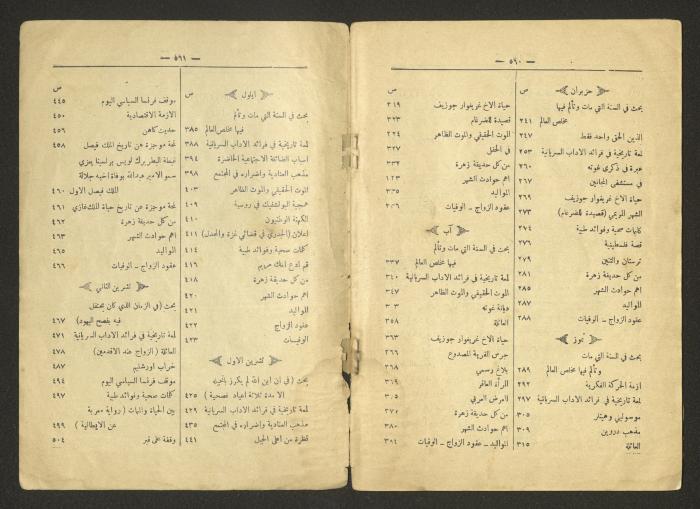 — ٥٦٠ —
حزيران
ص
بحث في السنة التي مات وتألم فيها
مخلص العالم ٢٤١
الدين الحق واحد فقط ٢٤٧
لمعة تاريخية في فرائد الاداب السريانية ٢٥٣
عبرة في ذكرى غوته ٢٦٠
في مستشفى المجانين ٢٦٧
حياة الاخ غريغوار جوزيف ٢٦٩
الشهر المريمي (قصيدة للضرغام) ٢٧٣
كلمات صحية وفوائد طبية ٢٧٤
قصة فلسطينية ٢٧٦
ترستان والتنين ٢٧٩
من كل حديقة زهرة ٢٨١
اهم حوادث الشهر ٢٨٥
المواليد ٢٨٧
عقود الزواج ـ الوفيات ٢٨٨
تموز
بحث في السنة التي مات
وتألم فيها مخلص العالم ٢٨٩
ازمة الحركة الفكرية ٢٩٢
لمعة تاريخية في فرائد الاداب السريانية ٢٩٧
موسوليني وهيتلر ٣٠٥
مذهب دروين ٣٠٩
العائلة ٣١٥
ص
حياة الاخ غريغوار جوزيف ٣١٩
قصيدة للضرغام ٣٢٣
الموت الحقيقي والموت الظاهر ٣٢٤
في الحقل ٣٢٧
من كل حديقة زهرة ٣٣٢
اهم حوادث الشهر
المواليد ٣٣٥
عقود الزواج ـ الوفيات
آب
بحث في السنة التي مات وتألم
فيها مخلص العالم ٣٣٧
لمعة تاريخية في فرائد الاداب السريانية ٣٤٠
الموت الحقيقي والموت الظاهر ٣٤٧
ديانة غوته
العائلة ٣٥٨
حياة الاخ غريغوار جوزيف ٣٦٣
جرس القرية المصدوع ٣٦٦
بلاغ رسمي ٣٦٨
المرأة العاقر ٣٦٩
القرض العربي
من كل حديقة زهرة
اهم حوادث الشهر ٣٨٠
المواليد ـ عقود الزواج ـ الوفيات ٣٨٤
— ٥٦١ —
ايلول
ص
بحث في السنة التي مات وتألم
فيها مخلص العالم ٣٨٥
لمعة تاريخية في فرائد الاداب السريانية ٣٨٨
اسباب الضائقة الاجتماعية الحاضرة ٣٩٤
مذهب المادية واضراره في المجتمع ٣٩٨
الموت الحقيقي والموت الظاهر ٤٠٣
همجية البولشفيك في روسية ٤٠٩
الكهنة الوطنيون ٤١٠
اعلان (الجدري في قضائي غزة والمجدل) ٤١١
كلمات صحية وفوائد طبية ٤١٤
قم لنزع امك مريم ٤١٦
من كل حديقة زهرة ٤١٨
اهم حوادث الشهر ٤٢٠
المواليد ٤٢١
عقود الزواج ٤٢٢
الوفيات ٤٢٣
تشرين الاول
بحث (في ان ابن الله لم يكرز بانجيله
الا مدة ثلاثة اعياد فصحية) ٤٢٥
لمعة تاريخية في فرائد الاداب السريانية ٤٢٩
مذهب المادية واضراره في المجتمع ٤٣٥
قطرة من اعلى الجبل ٤٤١
ص
موقف فرنسا السياسي اليوم ٤٤٥
الازمة الاقتصادية ٤٥٠
حديث كاهن ٤٥٦
لمحة موجزة عن تاريخ الملك فيصل ٤٥٨
غبطة البطريرك لويس برلسينا يعزي
سمو الامير عبدالله بوفاة اخيه جلالة
الملك فيصل الاول ٤٦٠
لمحة موجزة عن تاريخ حياة الملك غازي ٤٦١
من كل حديقة زهرة ٤٦٢
اهم حوادث الشهر ٤٦٣
المواليد ٤٦٥
عقود الزواج ـ الوفيات ٤٦٦
تشرين الثاني
بحث (في الزمان الذي كان يحتفل
فيه بفصح اليهود) ٤٦٧
لمعة تاريخية في فرائد الاداب السريانية ٤٧١
العائلة (الزواج عند الاقدمين) ٤٧٨
خراب اورشليم ٤٨٧
موقف فرنسا السياسي اليوم ٤٩٤
كلمات صحية وفوائد طبية ٤٩٧
بين الحياة والممات (رواية معربة
عن الايطالية) ٤٩٩
وقفة على قبر ٥٠٤